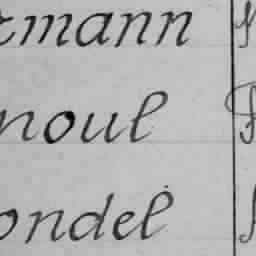 rmann
noul
ondel